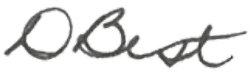 D Best